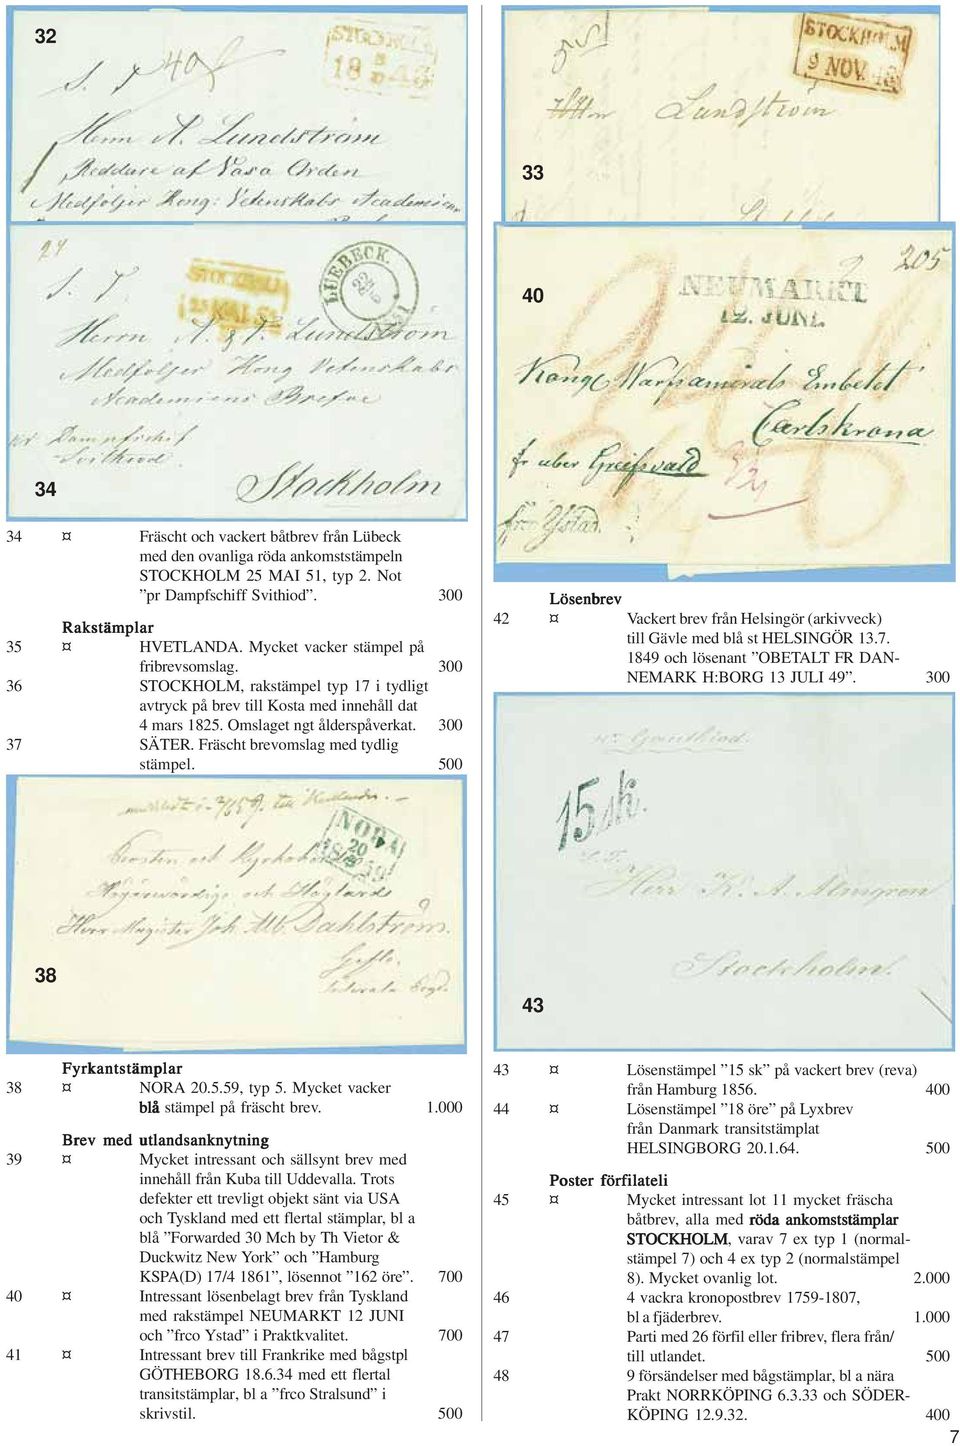 32
STOCKHOLM
18 43
S. T. 40
Herrn A. Lundström
Reddare af Vasa Orden
Medföljer Kong: Vetenskabs Academien
33
STOCKHOLM
9 NOV. 43
Herr Lundström
34
24
S. T.
STOCKHOLM
25 MAI 51
LUEBECK.
Herrn A. & F. Lundström
Medföljer Kong Vetenskabs
Academiens Brefve
Dampfschif
Svithiod.
Stockholm
40
205
NEUMARKT
12. JUNI.
Carlskrona
fr über Greifswald
frco Ystad.
34 ¤ Fräscht och vackert båtbrev från Lübeck
med den ovanliga röda ankomststämpeln
STOCKHOLM 25 MAI 51, typ 2. Not
”pr Dampfschiff Svithiod”. 300
Rakstämplar
35 ¤ HVETLANDA. Mycket vacker stämpel på
fribrevsomslag. 300
36 STOCKHOLM, rakstämpel typ 17 i tydligt
avtryck på brev till Kosta med innehåll dat
4 mars 1825. Omslaget ngt ålderspåverkat. 300
37 SÄTER. Fräscht brevomslag med tydlig
stämpel. 500
38
NORA
20
Herr Magister Joh. Alb. Dahlström.
Gefle.
Fyrkantstämplar
38 ¤ NORA 20.5.59, typ 5. Mycket vacker
blå stämpel på fräscht brev. 1.000
Brev med utlandsanknytning
39 ¤ Mycket intressant och sällsynt brev med
innehåll från Kuba till Uddevalla. Trots
defekter ett trevligt objekt sänt via USA
och Tyskland med ett flertal stämplar, bl a
blå ”Forwarded 30 Mch by Th Vietor &
Duckwitz New York” och ”Hamburg
KSPA(D) 17/4 1861”, lösennot ”162 öre”. 700
40 ¤ Intressant lösenbelagt brev från Tyskland
med rakstämpel NEUMARKT 12 JUNI
och ”frco Ystad” i Praktkvalitet. 700
41 ¤ Intressant brev till Frankrike med bågstpl
GÖTHEBORG 18.6.34 med ett flertal
transitstämplar, bl a ”frco Stralsund” i
skrivstil. 500
Lösenbrev
42 ¤ Vackert brev från Helsingör (arkivveck)
till Gävle med blå st HELSINGÖR 13.7.
1849 och lösenant ”OBETALT FR DAN-
NEMARK H:BORG 13 JULI 49”. 300
15 sk.
Herr K. A. Almgren
Stockholm.
43
43 ¤ Lösenstämpel ”15 sk” på vackert brev (reva)
från Hamburg 1856. 400
44 ¤ Lösenstämpel ”18 öre” på Lyxbrev
från Danmark transitstämplat
HELSINGBORG 20.1.64. 500
Poster förfilateli
45 ¤ Mycket intressant lot 11 mycket fräscha
båtbrev, alla med röda ankomststämplar
STOCKHOLM, varav 7 ex typ 1 (normal-
stämpel 7) och 4 ex typ 2 (normalstämpel
8). Mycket ovanlig lot. 2.000
46 4 vackra kronopostbrev 1759-1807,
bl a fjäderbrev. 1.000
47 Parti med 26 förfil eller fribrev, flera från/
till utlandet. 500
48 9 försändelser med bågstämplar, bl a nära
Prakt NORRKÖPING 6.3.33 och SÖDER-
KÖPING 12.9.32. 400
7